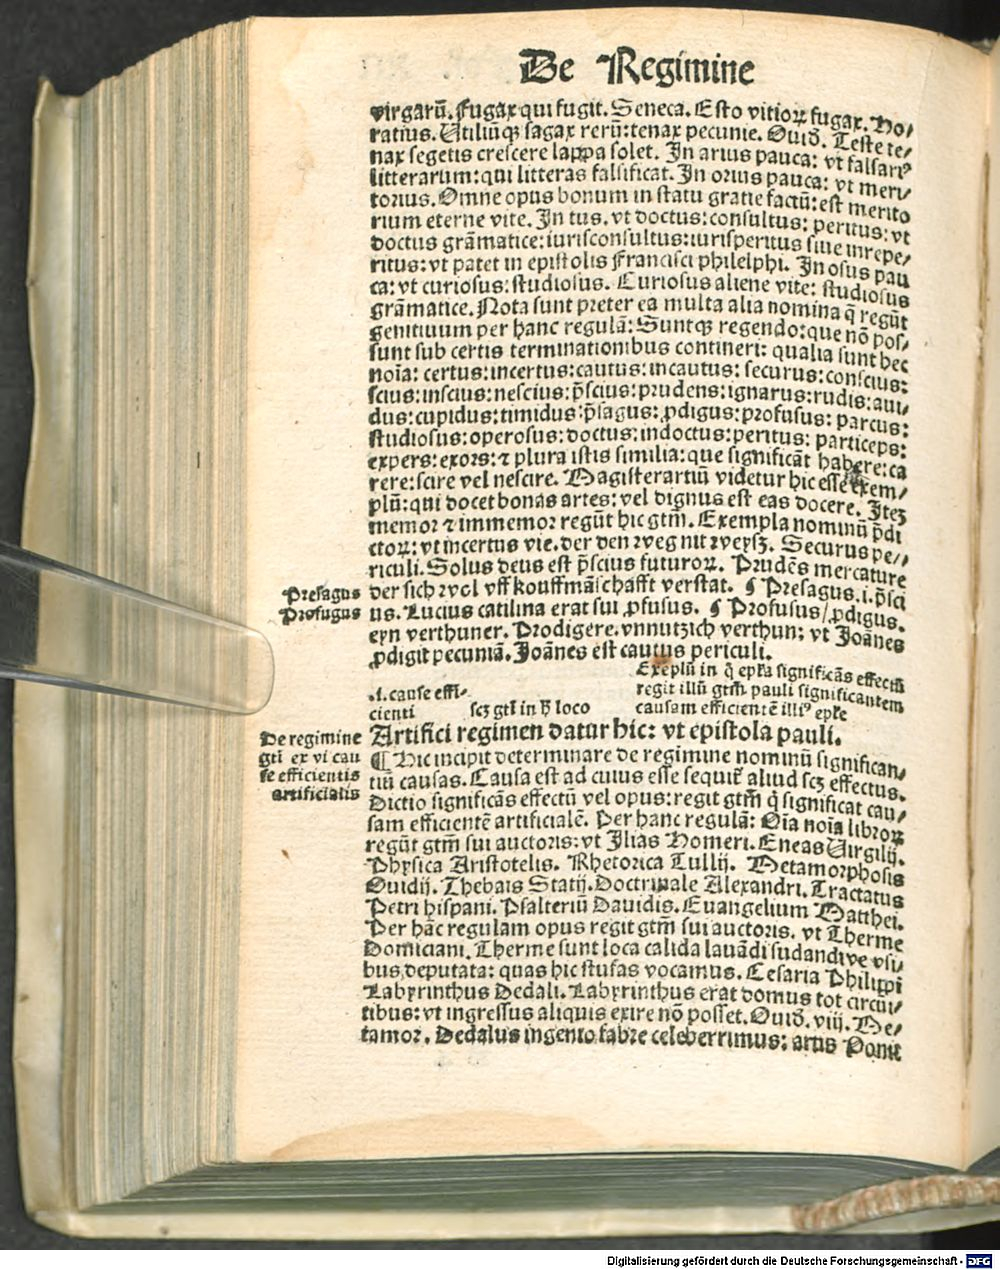 De Regimine
virgarū. Fugax qui fugit. Seneca. Esto vitioꝝ fugax. Ho/
ratius. Utiliūqꝫ sagax rerū: tenax pecunie. Ouid̄. Teste te/
nax segetis crescere lappa solet. In arius pauca: vt falsariꝰ
litterarum: qui litteras falsificat. In orius pauca: vt meri/
torius. Omne opus bonum in statu gratie factū: est merito
rium eterne vite. In tus. vt doctus: consultus: peritus: vt
doctus grāmatice: iurisconsultus: iurisperitus siue inrepe/
ritus: vt patet in epistolis Francisci philelphi. In osus pau
ca: vt curiosus: studiosus. Curiosus aliene vite: studiosus
grāmatice. Nota sunt preter ea multa alia nomina q̄ regūt
genitiuum per hanc regulā: Suntqꝫ regendo: que nō pos/
sunt sub certis terminationibus contineri: qualia sunt hec
noīa: certus: incertus: cautus: incautus: securus: conscius:
scius: inscius: nescius: p̄scius: prudens: ignarus: rudis: aui/
dus: cupidus: timidus: p̄sagus: ꝓdigus: profusus: parcus:
studiosus: operosus: doctus: indoctus: peritus: particeps:
expers: exors: ⁊ plura istis similia: que significāt habere: ca
rere: scire vel nescire. Magister artiū videtur hic esse exem/
plū: qui docet bonas artes: vel dignus est eas docere. Iteꝫ
memor ⁊ immemor regūt hic gtm̄. Exempla nominū p̄di
ctoꝝ: vt incertus vie. der den weg nit weysꝫ. Securus pe//
riculi. Solus deus est p̄scius futuroꝝ. Prudēs mercature
der sich wol vff kouffmāschafft verstat. ¶ Presagus. i. p̄sci
us. Lucius catilina erat sui ꝓfusus. ¶ Profusus/ ꝓdigus.
eyn verthuner. Prodigere. vnnutzich verthun: vt Joānes
ꝓdigit pecuniā. Joānes est cautus periculi.
Presagus
Profugus
Exeplū in q̄ ep̄la significās effectū
.i. cause effi-
regit illū gtm̄ pauli significantem
cienti
scꝫ gtī in h̄ loco
causam efficientē illiꝰ ep̄le
Artifici regimen datur hic: vt epistola pauli.
De regimine
gtī ex vi cau
se efficientis
artificialis
¶ Hic incipit determinare de regimine nominū significan/
tiū causas. Causa est ad cuius esse sequit᷑ aliud scꝫ effectus.
Dictio significās effectū vel opus: regit gtm̄ q̄ significat cau/
sam efficientē artificialē. Per hanc regulā: Oīa noīa libroꝝ
regūt gtm̄ sui auctoris: vt Ilias Homeri. Eneas Uirgilij.
Physica Aristotelis. Rhetorica Tullij. Metamorphosis
Ouidij. Thebais Statij. Doctrinale Alexandri. Tractatus
Petri hispani. Psalteriū Dauidis. Euangelium Matthei.
Per hāc regulam opus regit gtm̄ sui auctoris. vt Therme
Domiciani. Therme sunt loca calida lauādi sudandive vsi/
bus deputata: quas hic stufas vocamus. Cesaria Philippi
Labyrinthus Dedali. Labyrinthus erat domus tot circui/
tibus: vt ingressus aliquis exire nō posset. Ouid̄. viij. Me/
tamor. Dedalus ingenio fabre celeberrimus: artis Ponit
Digitalisierung gefördert durch die Deutsche Forschungsgemeinschaft - DFG